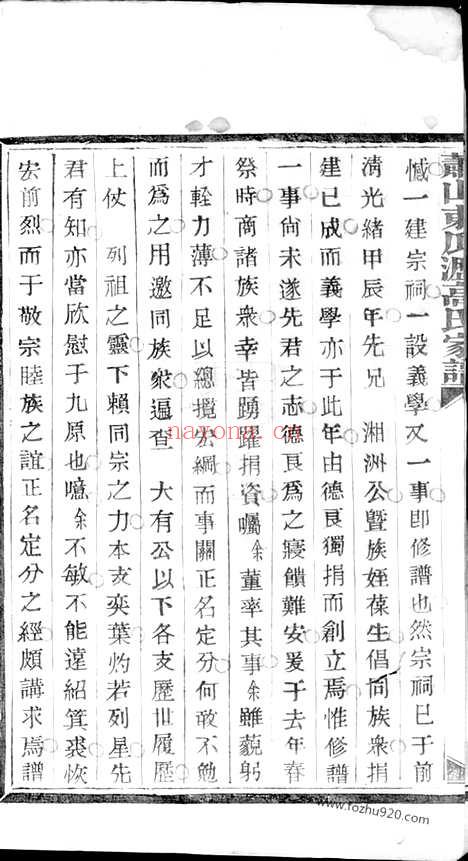 憾一建宗祠一設義學又一事即修譜也然宗祠已于前
清光緒甲辰年先兄 湘洲公曁族姪葆生倡同族衆捐
建已成而義學亦于此年由德良獨捐而創立焉惟修譜
一事尙未遂先君之志德良爲之寢饋難安爰于去年春
祭時商諸族衆幸皆踴躍捐資囑余董率其事余雖藐躬
才輇力薄不足以總攬宏綱而事關正名定分何敢不勉
而爲之用邀同族衆遍查 大有公以下各支歷世履歷
上仗 列祖之靈下賴同宗之力本支奕葉灼若列星先
君有知亦當欣慰于九原也噫余不敏不能遠紹箕裘恢
宏前烈而于敬宗睦族之誼正名定分之經頗講求焉譜
蕭山東瓜瀝高氏家譜
nayona.cn
www.fozhu920.com